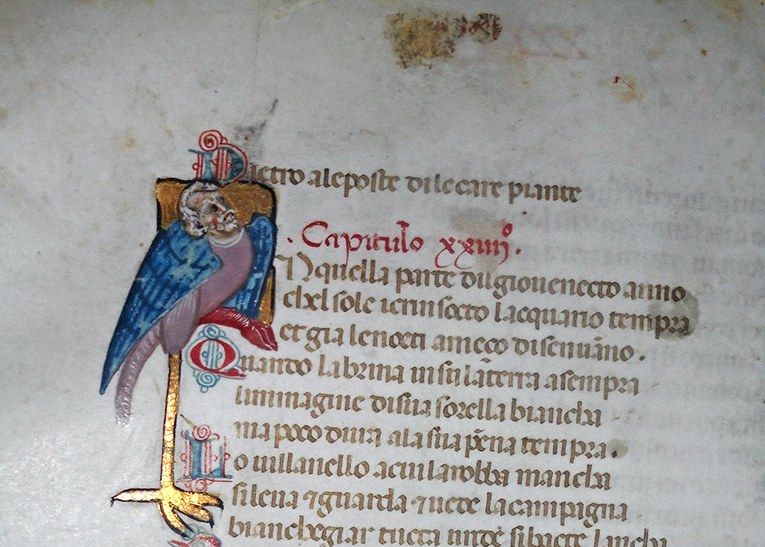 Dietro ale poste di le care piante
. Capitulo xxiiijº .
In quella parte dil giovenecto anno
chel sole icrin socto lacquario tempra
et gia le nocti ameço di sen vāno .
Quando la brina in su la terra asempra
limmagine di sua sorella biancha
ma poco dura ala sua pēna tempra .
Lo uillanello acui la robba mancha
si leua ⁊ guarda ⁊ uete la campagna
biancheģiar tucta